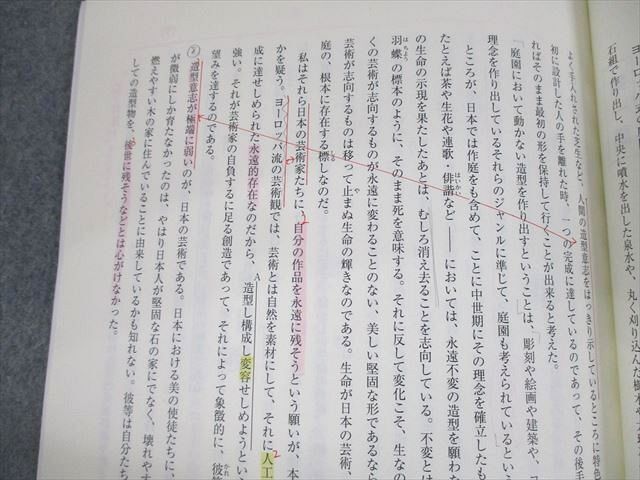 ヨーロッパの
石組で作り出し、中央に噴水を出した泉水や、丸く刈り込
よく手入れされた芝生など、人間の造型意志をはっきり示しているところに特色
初に設計した人の手を離れた時、一つの完成に達しているのであって、その後手
ればそのまま最初の形を保持して行くことが出来ると考えた。
「庭園において動かない造型を作り出すということは、彫刻や絵画や建築や、
理念を作り出しているそれらのジャンルに準じて、庭園も考えられているという
ところが、日本では作庭をも含めて、ことに中世期にその理念を確立したも
たとえば茶や生花や連歌・俳諧など――においては、永遠不変の造型を願わた
はいかい
の生命の示現を果たしたあとは、むしろ消え去ることを志向している。不変とは
羽蝶の標本のように、そのまま死を意味する。それに反して変化こそ、生なの
はちょう
くの芸術が志向するものが永遠に変わることのない、美しい堅固な形であるなら
芸術が志向するものは移って止まぬ生命の輝きなのである。生命が日本の芸術、
や
庭の、根本に存在する標しなのだ。
しる
私はそれら日本の芸術家たちに、自分の作品を永遠に残そうという願いが、本
かを疑う。ヨーロッパ流の芸術観では、芸術とは自然を素材にして、それに人工
成に達せしめられた永遠的存在なのだから、A造型し構成し変容せしめようという
強い。それが芸術家の自負するに足る創造であって、それによって象徴的に、彼等
かれ
望みを達するのである。
⑤造型意志が極端に弱いのが、日本の芸術である。日本における美の使徒たちに、
が微弱にしか育たなかったのは、やはり日本人が堅固な石の家にでなく、壊れやす
燃えやすい木の家に住んでいることに由来しているかも知れない。彼等は自分たち
しての造型物を、後世に残そうなどとは心がけなかった。